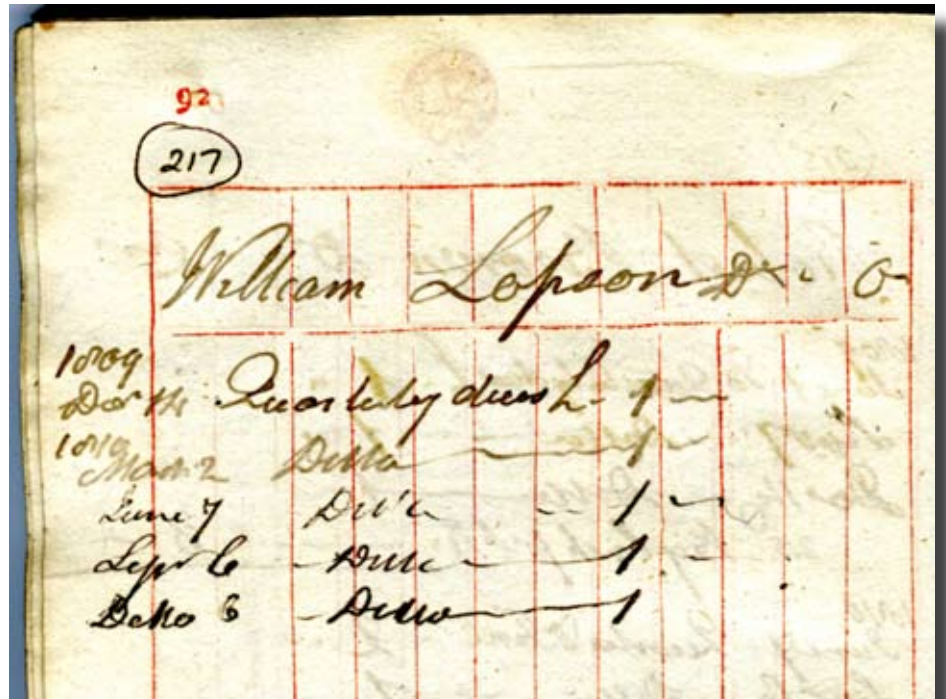 92
217
William Lopson Dr. O
1809
Quarterly dues L - 1 -
1810
March 2 Ditto 1
June 7 Ditto - - 1 -
Sepr 6 - Ditto - 1 -
Ditto 6 - Ditto 1